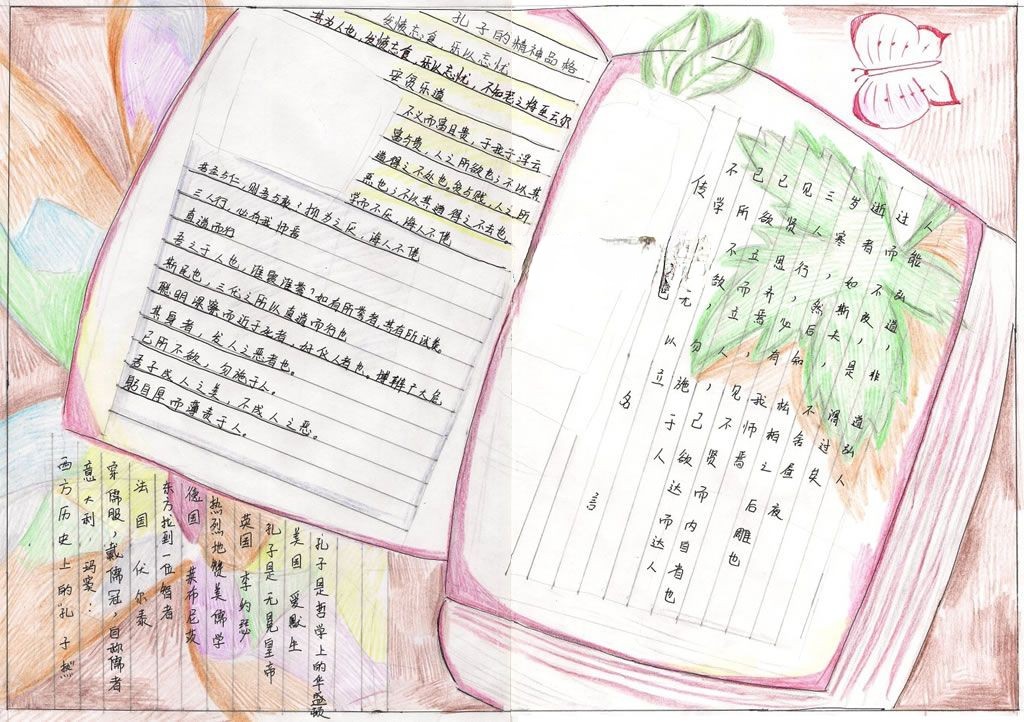 孔子的精神品格
发愤忘食,乐以忘忧
其为人也,发愤忘食,乐以忘忧,不知老之将至云尔
安贫乐道
不义而富且贵,于我于浮云
富与贵,人之所欲也;不以其
道得之不处也;贫与贱,人之所
恶也;不以其道得之不去也。
学而不厌,诲人不倦
若圣与仁,则吾与敢?抑为之厌,诲人不倦
三人行,必有我师焉
直道而行
吾之于人也,谁毁谁誉?如有所誉者,其有所试矣。
斯民也,三代之所以直道而行也
聪明深察而近于死者,好议人者也。博辩广大危
其身者,发人之恶者也。
己所不欲,勿施于人。
吾子成人之美,不成人之恶。
躬自厚而薄责于人。
人能弘道,非道弘人
过而不,是
逝者如斯夫,不舍昼夜
岁寒,然后知松柏之后雕也
三人行,必有我师焉
见贤思齐焉,见不贤而内自省也
己欲立而立人,己欲达而达人
己所不欲,勿施于人
不学无以立
传名言
西方历史上的"孔子热"
意大利 玛窦:
穿儒服,戴儒冠,自称儒者
法国 伏尔泰
东方找到一位智者
德国 莱布尼茨
热烈地赞美儒学
英国 李约瑟
孔子是无冕皇帝
美国 爱默生
孔子是哲学上的华盛顿